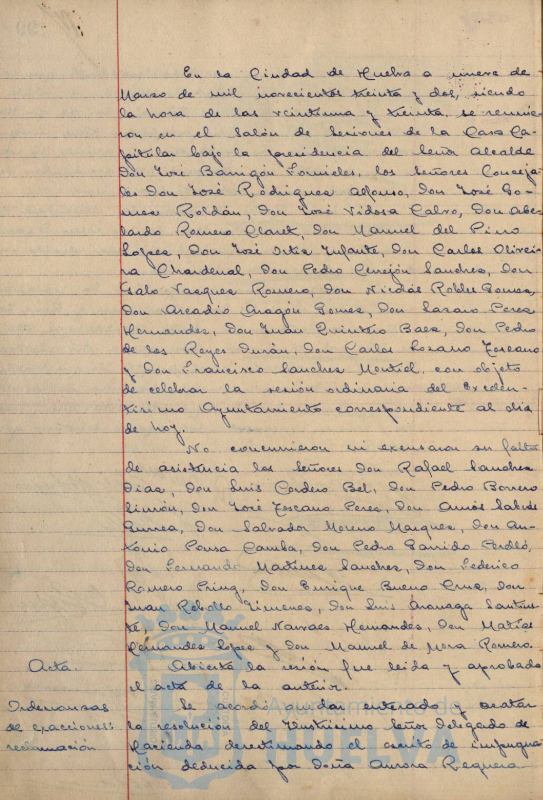 En la Ciudad de Huelva a nueve de
Marzo de mil novecientos treinta y dos, siendo
la hora de las veintiuna y treinta, se reunie-
ron en el salón de sesiones de la Casa Ca-
pitular bajo la presidencia del Señor Alcalde
Don José Barrigón Fornieles, los señores Conceja-
les Don José Rodriguez Alfonso, Don José Go-
mez Roldán, Don José Vidosa Calvo, Don Abe-
lardo Romero Claret, Don Manuel del Pino
Lopez, Don José Ortiz Infante, Don Carlos Olivei-
ra Chardenal, Don Pedro Cerrejón Sanchez, Don
Galo Vazquez Romero, Don Nicolás Robles Gomez,
Don Arcadio Aragón Gomez, Don Lazaro Perez
Hernandez, Don Juan Quintero Baez, Don Pedro
de los Reyes Durán, Don Carlos Lozano Toscano
y Don Francisco Sanchez Montiel, con objeto
de celebrar la sesión ordinaria del Exelen-
tísimo Ayuntamiento correspondiente al dia
de hoy.
No concurrieron ni excusaron su falta
de asistencia los señores Don Rafael Sanchez
Diaz, Don Luis Cordero Bel, Don Pedro Borrero
Limón, Don José Toscano Perez, Don Amós Sabrás
Gurrea, Don Salvador Moreno Marquez, Don An-
tonio Pousa Camba, Don Pedro Garrido Perelló,
Don Fernando Martinez Sanchez, Don Federico
Romero Pring, Don Enrique Bueno Cruz, Don
Juan Rebollo Jimenez, Don Luis
Don Manuel Narvaez Hernandez, Don Matías
Fernandez Lopez y Don Manuel de Mora Romero.
Acta. Abierta la sesión fue leida y aprobada
el acta de la anterior.
Ordenanzas Se acordó quedar enterado y acatar
de exacciones: la resolución del Ilustrísimo Señor Delegado de
reclamación Hacienda desestimando el escrito de impugna-
ción deducida por Doña Aurora Requena
Ayuntamiento de
HUELVA